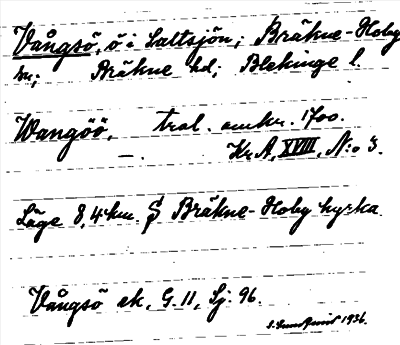 Vångsö, ö i Saltsjön; Bräkne-Hoby
sn; Bräkne hd; Blekinge l.
Wangöö, tral. omkr. 1700.
—. Kr.A, XVIII, N:o 3.
Läge 8,4 km. S Bräkne-Hoby kyrka
Vångsö ek. G. 11, Sj. 96.
1936.